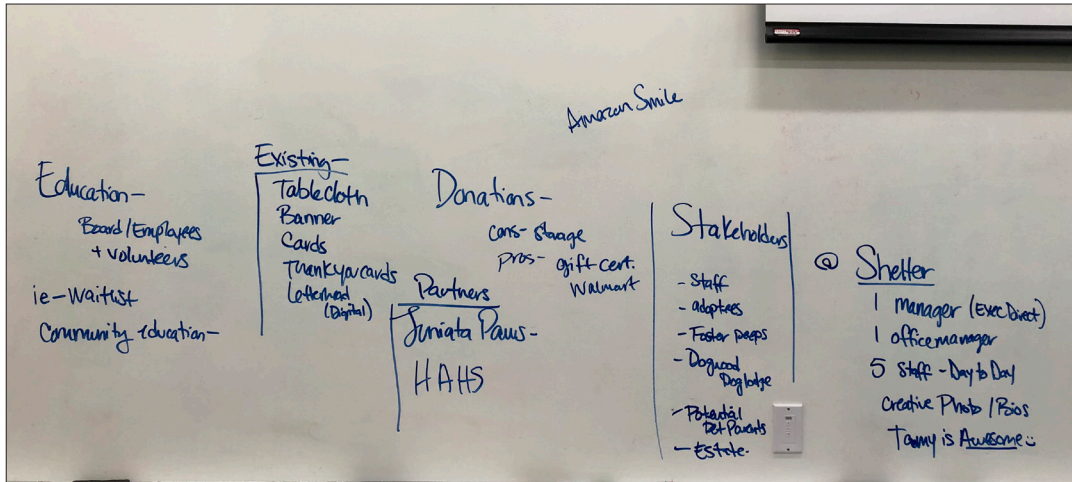 Amazon Smile
Education-
Board/Employees
+ volunteers
ie-Waitlist
Community education-
Existing-
Tablecloth
Banner
Cards
Thankyou cards
Letterhead
(Digital)
Donations-
cons- storage
pros- gift cert.
Walmart
Partners
Juniata Paws-
HAHS
Stakeholders
- Staff
- adoptees
- Foster peeps
- Dogwood
Doglodge
- Potential
Pet Parents
- Estate.
@ Shelter
1 manager (Exec Direct)
1 office manager
5 Staff - Day to Day
Creative Photo/Bios
Tammy is Awesome